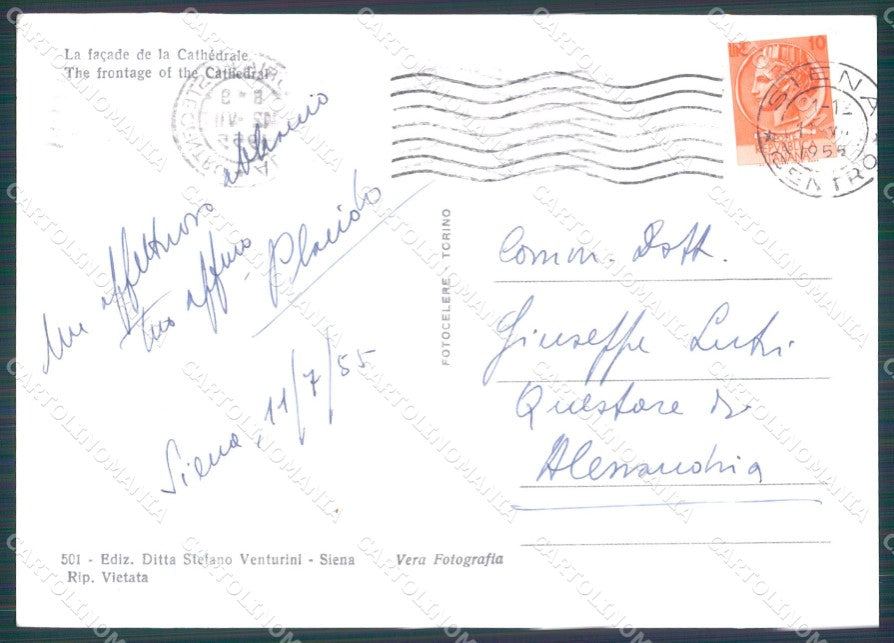 La façade de la Cathédrale
The frontage of the Cathedral
LIRE 10
SIENA
CENTRO
1955
Un affettuoso abbraccio
tuo aff.mo
Placido
Siena, 11/7/55
FOTOCELERE TORINO
Comm. Dott.
Giuseppe Lutri
Questore di
Alessandria
501 - Ediz. Ditta Stefano Venturini - Siena
Rip. Vietata
Vera Fotografia
CARTOLINOMANIA